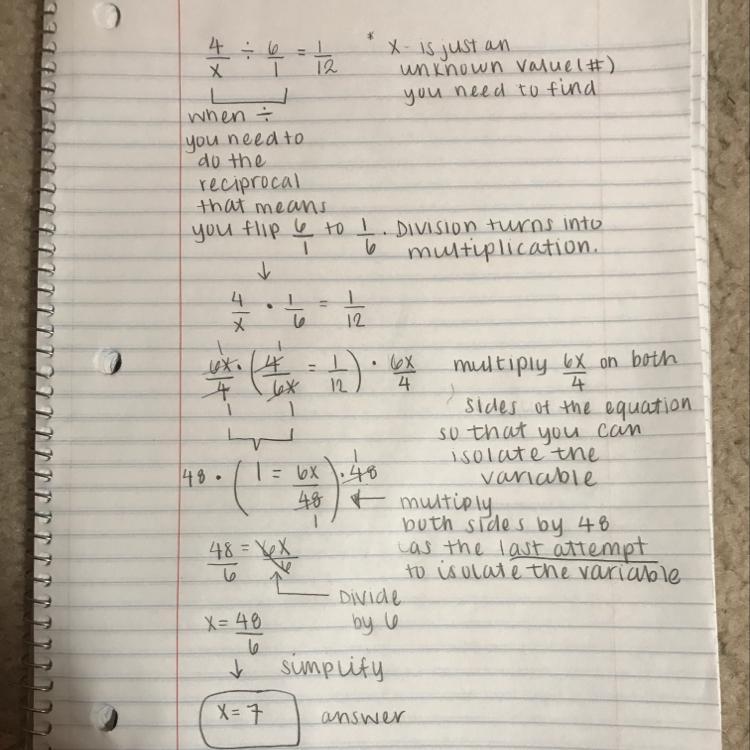 4/x ÷ 6/1 = 1/12
* x- is just an
unknown value(#)
you need to find
when ÷
you need to
do the
reciprocal
that means
you flip 6/1 to 1/6. Division turns into
multiplication.
↓
4/x · 1/6 = 1/12
1 1
6x/4 · (4/6x = 1/12) · 6x/4
1 1
multiply 6x/4 on both
sides of the equation
so that you can
isolate the
variable
1
48 · (1 = 6x/48) · 48
1
← multiply
both sides by 48
as the last attempt
to isolate the variable
48/6 = 6x/6
Divide
by 6
x = 48/6
↓ simplify
x = 7 answer